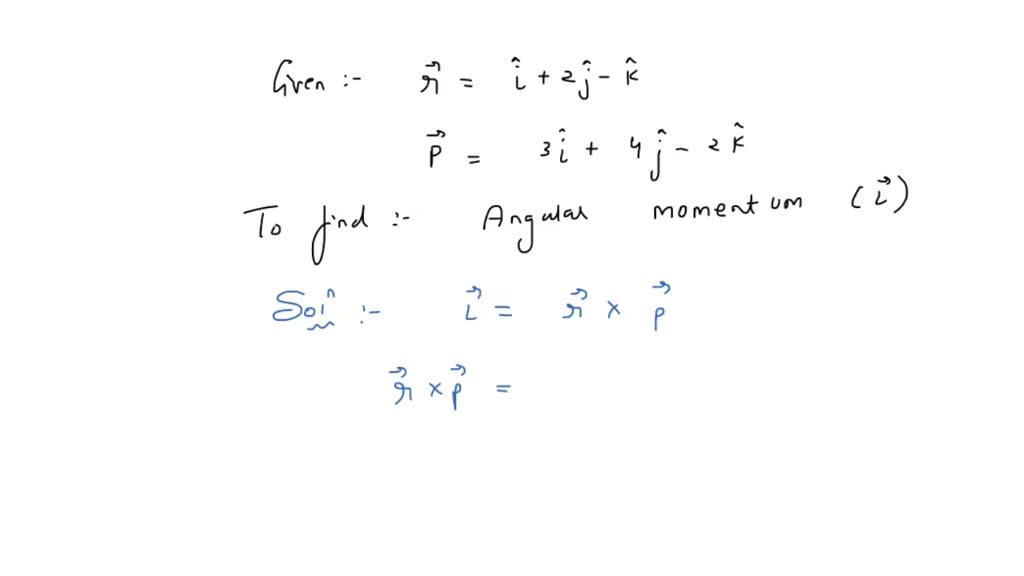 Given :- r⃗ = î + 2ĵ - k̂
P⃗ = 3î + 4ĵ - 2k̂
To find :- Angular momentum (L⃗)
Solⁿ :- L⃗ = r⃗ × P⃗
r⃗ × P⃗ =